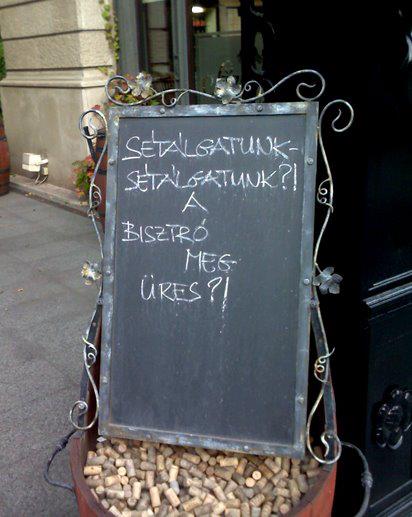 SÉTÁLGATUNK-
SÉTÁLGATUNK?!
A
BISZTRÓ
MEG-
ÜRES?!